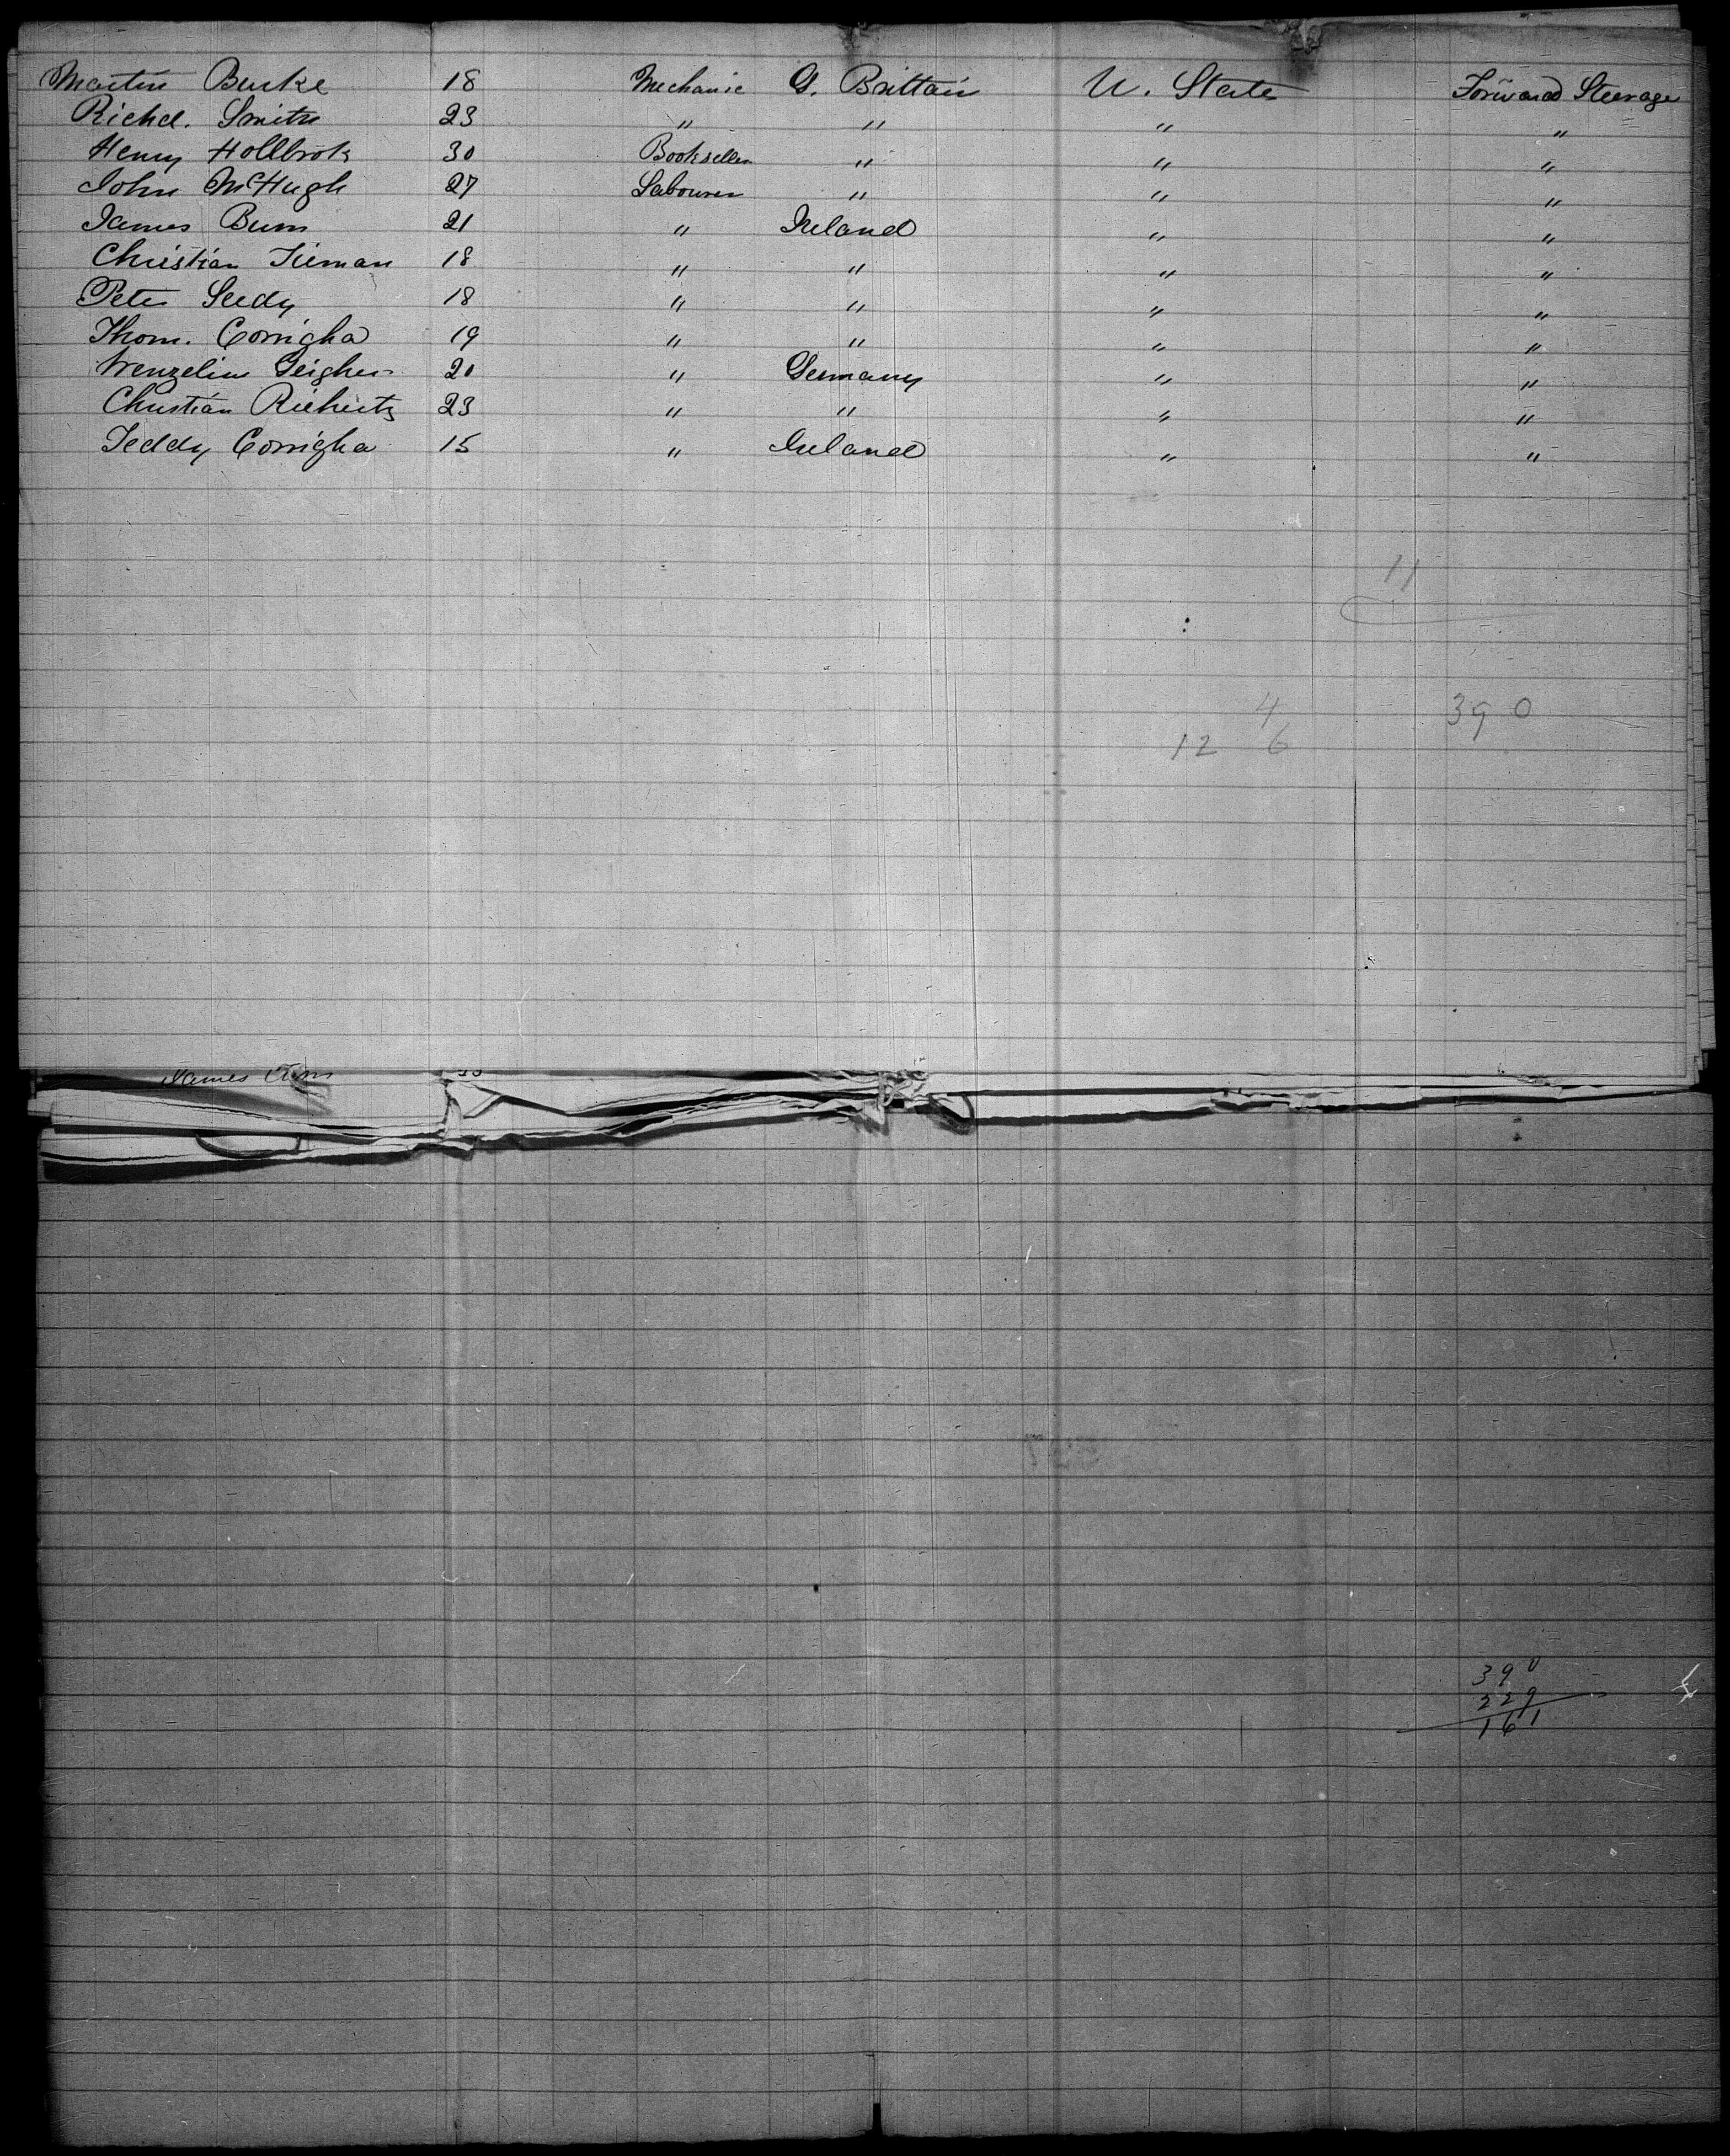 Martin Burke 18 Mechanic G. Brittain U. States Forward Steerage
Richd. Smith 23 " " " "
Henry Hollbrok 30 Bookseller " " "
John McHugh 27 Labourer " " "
James Burns 21 " Ireland " "
Christian Tieman 18 " " " "
Peter Leedy 18 " " " "
Thom. Corrigha 19 " " " "
Wenzelin Geigher 20 " Germany " "
Christian 23 " " " "
Teddy Corrigha 15 " Ireland " "
11
4 390
12 6
James
390
229
161